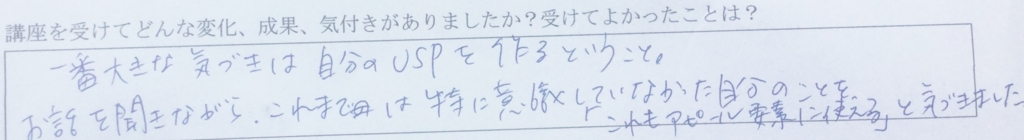 講座を受けてどんな変化、成果、気付きがありましたか?受けてよかったことは?
一番大きな気づきは自分のUSPを作るということ。
お話を聞きながら、これまでは特に意識していなかった自分のことを
「これもアピール要素に使える」と気づきました